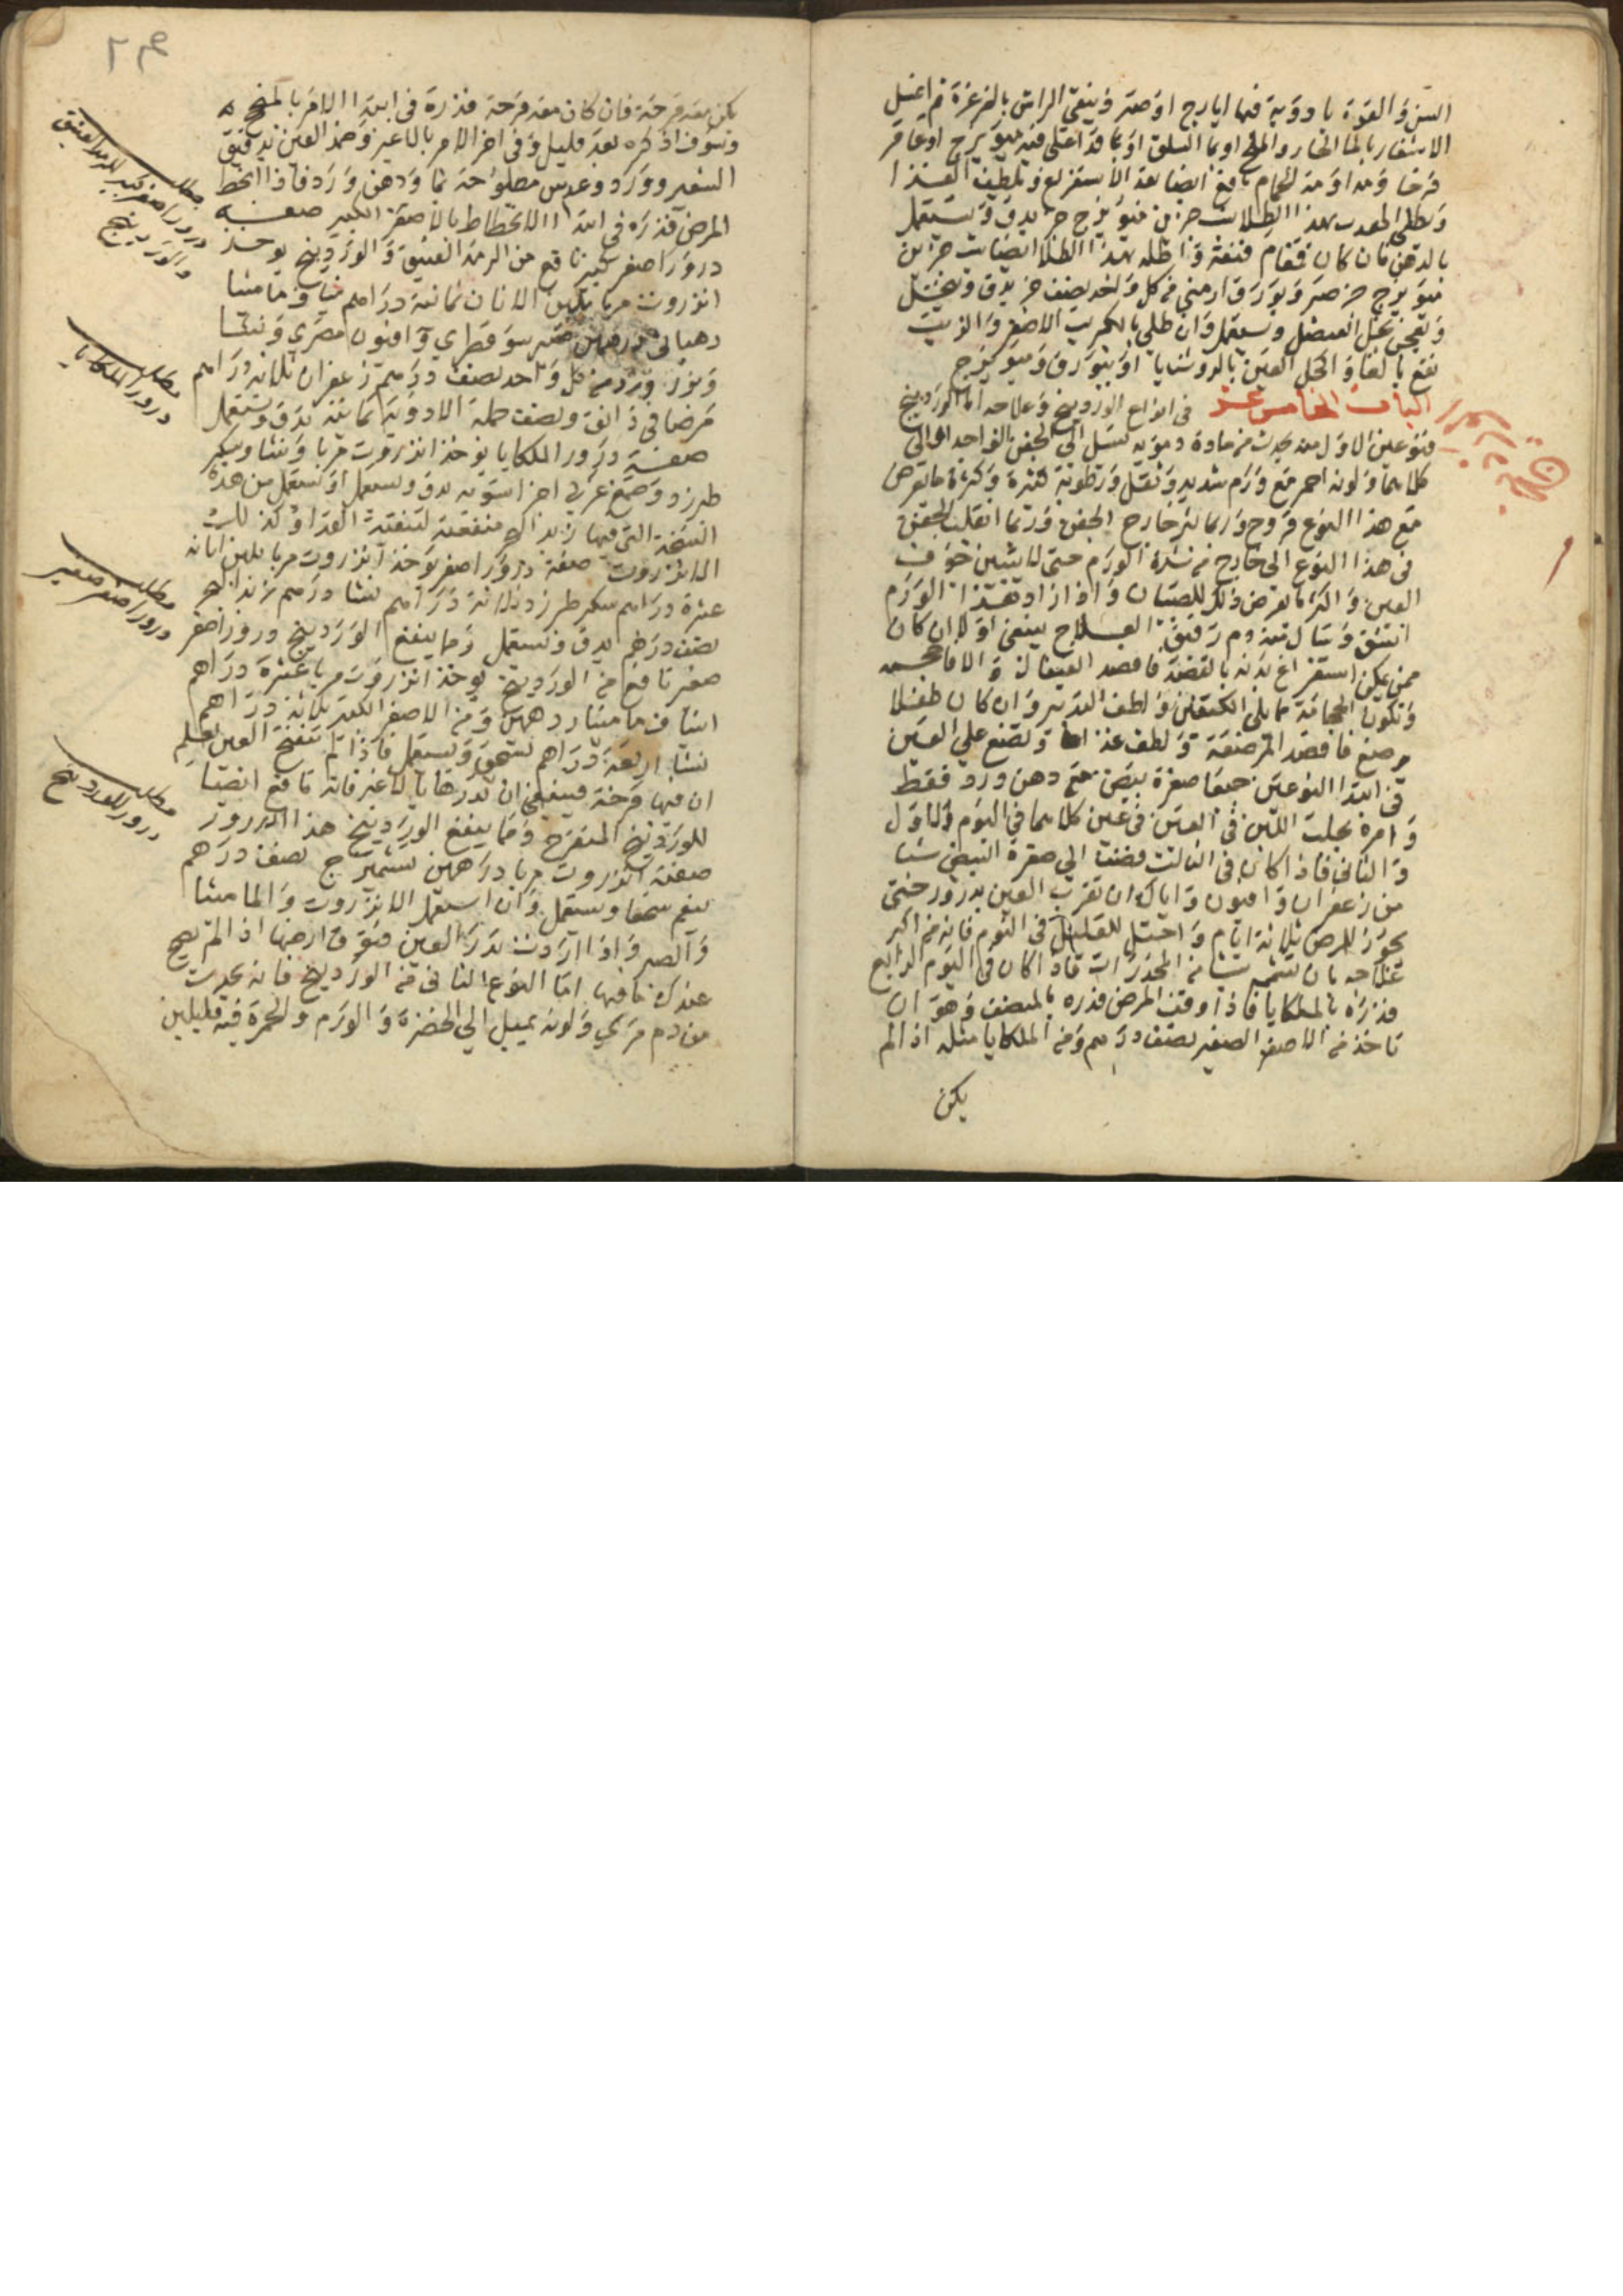 السن والقوة بادوية فيها ايارج او صبر وينقى الراس بالغرغرة ثم اغسل
الاشفار بالما الحار والملح او بما السلق او بما قد اغلى فيه ميويزج او عاقر
قرحا ومداومة الحمام نافع ايضا بعد الاستفراغ وتلطيف الغذا
ويطلى الهدب بهذا الطلا شب جزين ميويزج جز يدق ويستعمل
بالدهن فان كان قمقام فنقه واطله بهذا الطلا ايضا شب جزين
ميويزج جز صبر وبورق ارمنى من كل واحد نصف جز يدق وينخل
ويعجن بخل العنصل ويستعمل وان طلي بالكبريت الاصفر والزيت
نفع بالغا واكحل العين بالروشنايا او ببورق وميويزج
الباب الخامس عشر فى انواع الوردينج وعلاجه اما الوردينج
فنوعين الاول منه يحدث من مادة دموية تسيل الى الجفن الواحد او الى
كلاهما ولونه احمر مع ورم شديد وثقل ورطوبة كثيرة وكثرة ما يعرض
مع هذا النوع قروح وربما خارج الجفن وربما انقلب الجفن
فى هذا النوع الى خارج من شدة الورم حتى لا يتبين جوف
العين واكثر ما يعرض ذلك للصبيان واذا زاد هذا الورم
انشق وسال منه دم رقيق العلاج ينبغى اولا ان كان
ممن يمكن استفراغ بدنه بالفصد فافصد القيفال والا فاحجمه
وتكون الحجامة مما يلى الكتفين ولطف التدبير وان كان طفلا
مرضع فافصد المرضعة ولطف غذاها وتضع على العين
فى ابتدا النوعين جميعا صفرة بيض مع دهن ورد فقط
وامره بحلب اللبن فى العين فى عين كلاهما في اليوم الاول
والثانى فاذا كان فى الثالث فضف الى صفرة البيض شيا
من زعفران وافيون واياك ان تقرب العين بدرور حتى
يجوز المرض ثلاثة ايام واحتل للعليل فى النوم فانه من اكبر
علاجه بان تشمه شيا من المخدرات فاذا كان فى اليوم الرابع
فذره بالملكايا فاذا وقف المرض فذره بالمنصف وهو ان
تاخذ من الاصفر الصغير نصف درهم ومن الملكايا مثله اذا لم
يكن
يكن معه قرحة فان كان معه قرحة فذره فى ابتدا الامر
وسوف اذكره بعد قليل وفى اخر الامر بالاغبر وضمد العين بدقيق
الشعير وورد وعدس مطبوخة بما ودهن ورد فاذا انحط
المرض فذره فى ابتدا الانحطاط بالاصفر الكبير صفة
درور اصفر كبير نافع من الرمد العتيق والوردينج يوخذ
انزروت مربا بلبن الاتان ثمانية دراهم شياف ماميثا
درهمين صبر سوقطري وافيون مصري ونشا
وبزر ورد من كل واحد نصف درهم زعفران ثلاثه دراهم
جملة الادوية ثمانية يدق ويستعمل
صفة درور الملكايا يوخذ انزروت مربا ونشا وسكر
طبرزد وصمغ عربي اجزا سويه يدق ويستعمل او تستعمل من هذه
النسخة التى فيها زبد البحر منفعته لتنقية القذا وكذلك
الانزروت صفة درور اصفر يوخذ انزروت مربا بلبن اتانه
عشرة دراهم سكر طبرزد ثلاثة دراهم نشا درهم زبد البحر
نصف درهم يدق ويستعمل ومما ينفع الوردينج درور اصفر
صغير نافع من الوردينج يوخذ انزروت مربا عشرة دراهم
اشياف ماميثا درهمين ومن الاصفر الكبير ثلاثة دراهم
نشا اربعة دراهم تسحق ويستعمل فاذا لم تنفتح العين لعلم
ان فيها قرحة فينبغى ان تدرها بالاغبر فانه نافع ايضا
للوردينج المتقرح ومما ينفع الوردينج هذا الدرور
صفته انزروت مربا درهمين تشميزج نصف درهم
ينعم سحقا ويستعمل وان استعمل الانزروت والماميثا
والصبر واذا اردت تدر العين فتوق ارضها اذا لم يصح
عندك ما فيها اما النوع الثانى من الوردينج فانه يحدث
من دم مري ولونه يميل الي الخضرة والورم والحمرة فيه قليلين
مطلب
درور اصفر كبير للرمد العتيق
والوردينج
مطلب
درور الملكايا
مطلب
درور اصفر صغير
مطلب
درور للوردينج